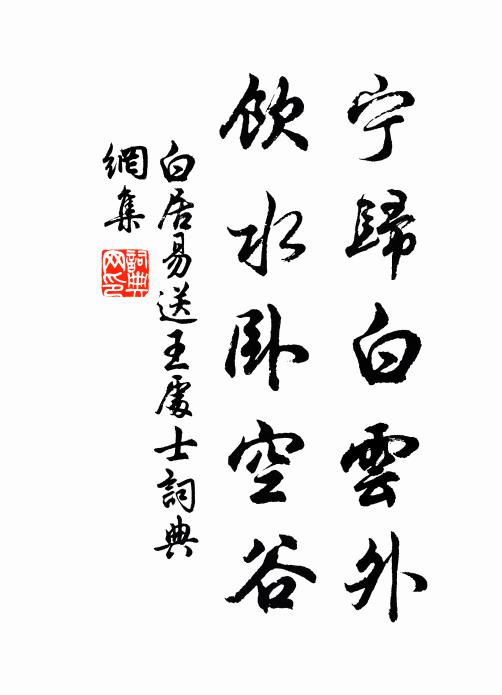 宁歸白雲外
飲水卧空谷
白居易送王處士詞典
網集
詞典
网印